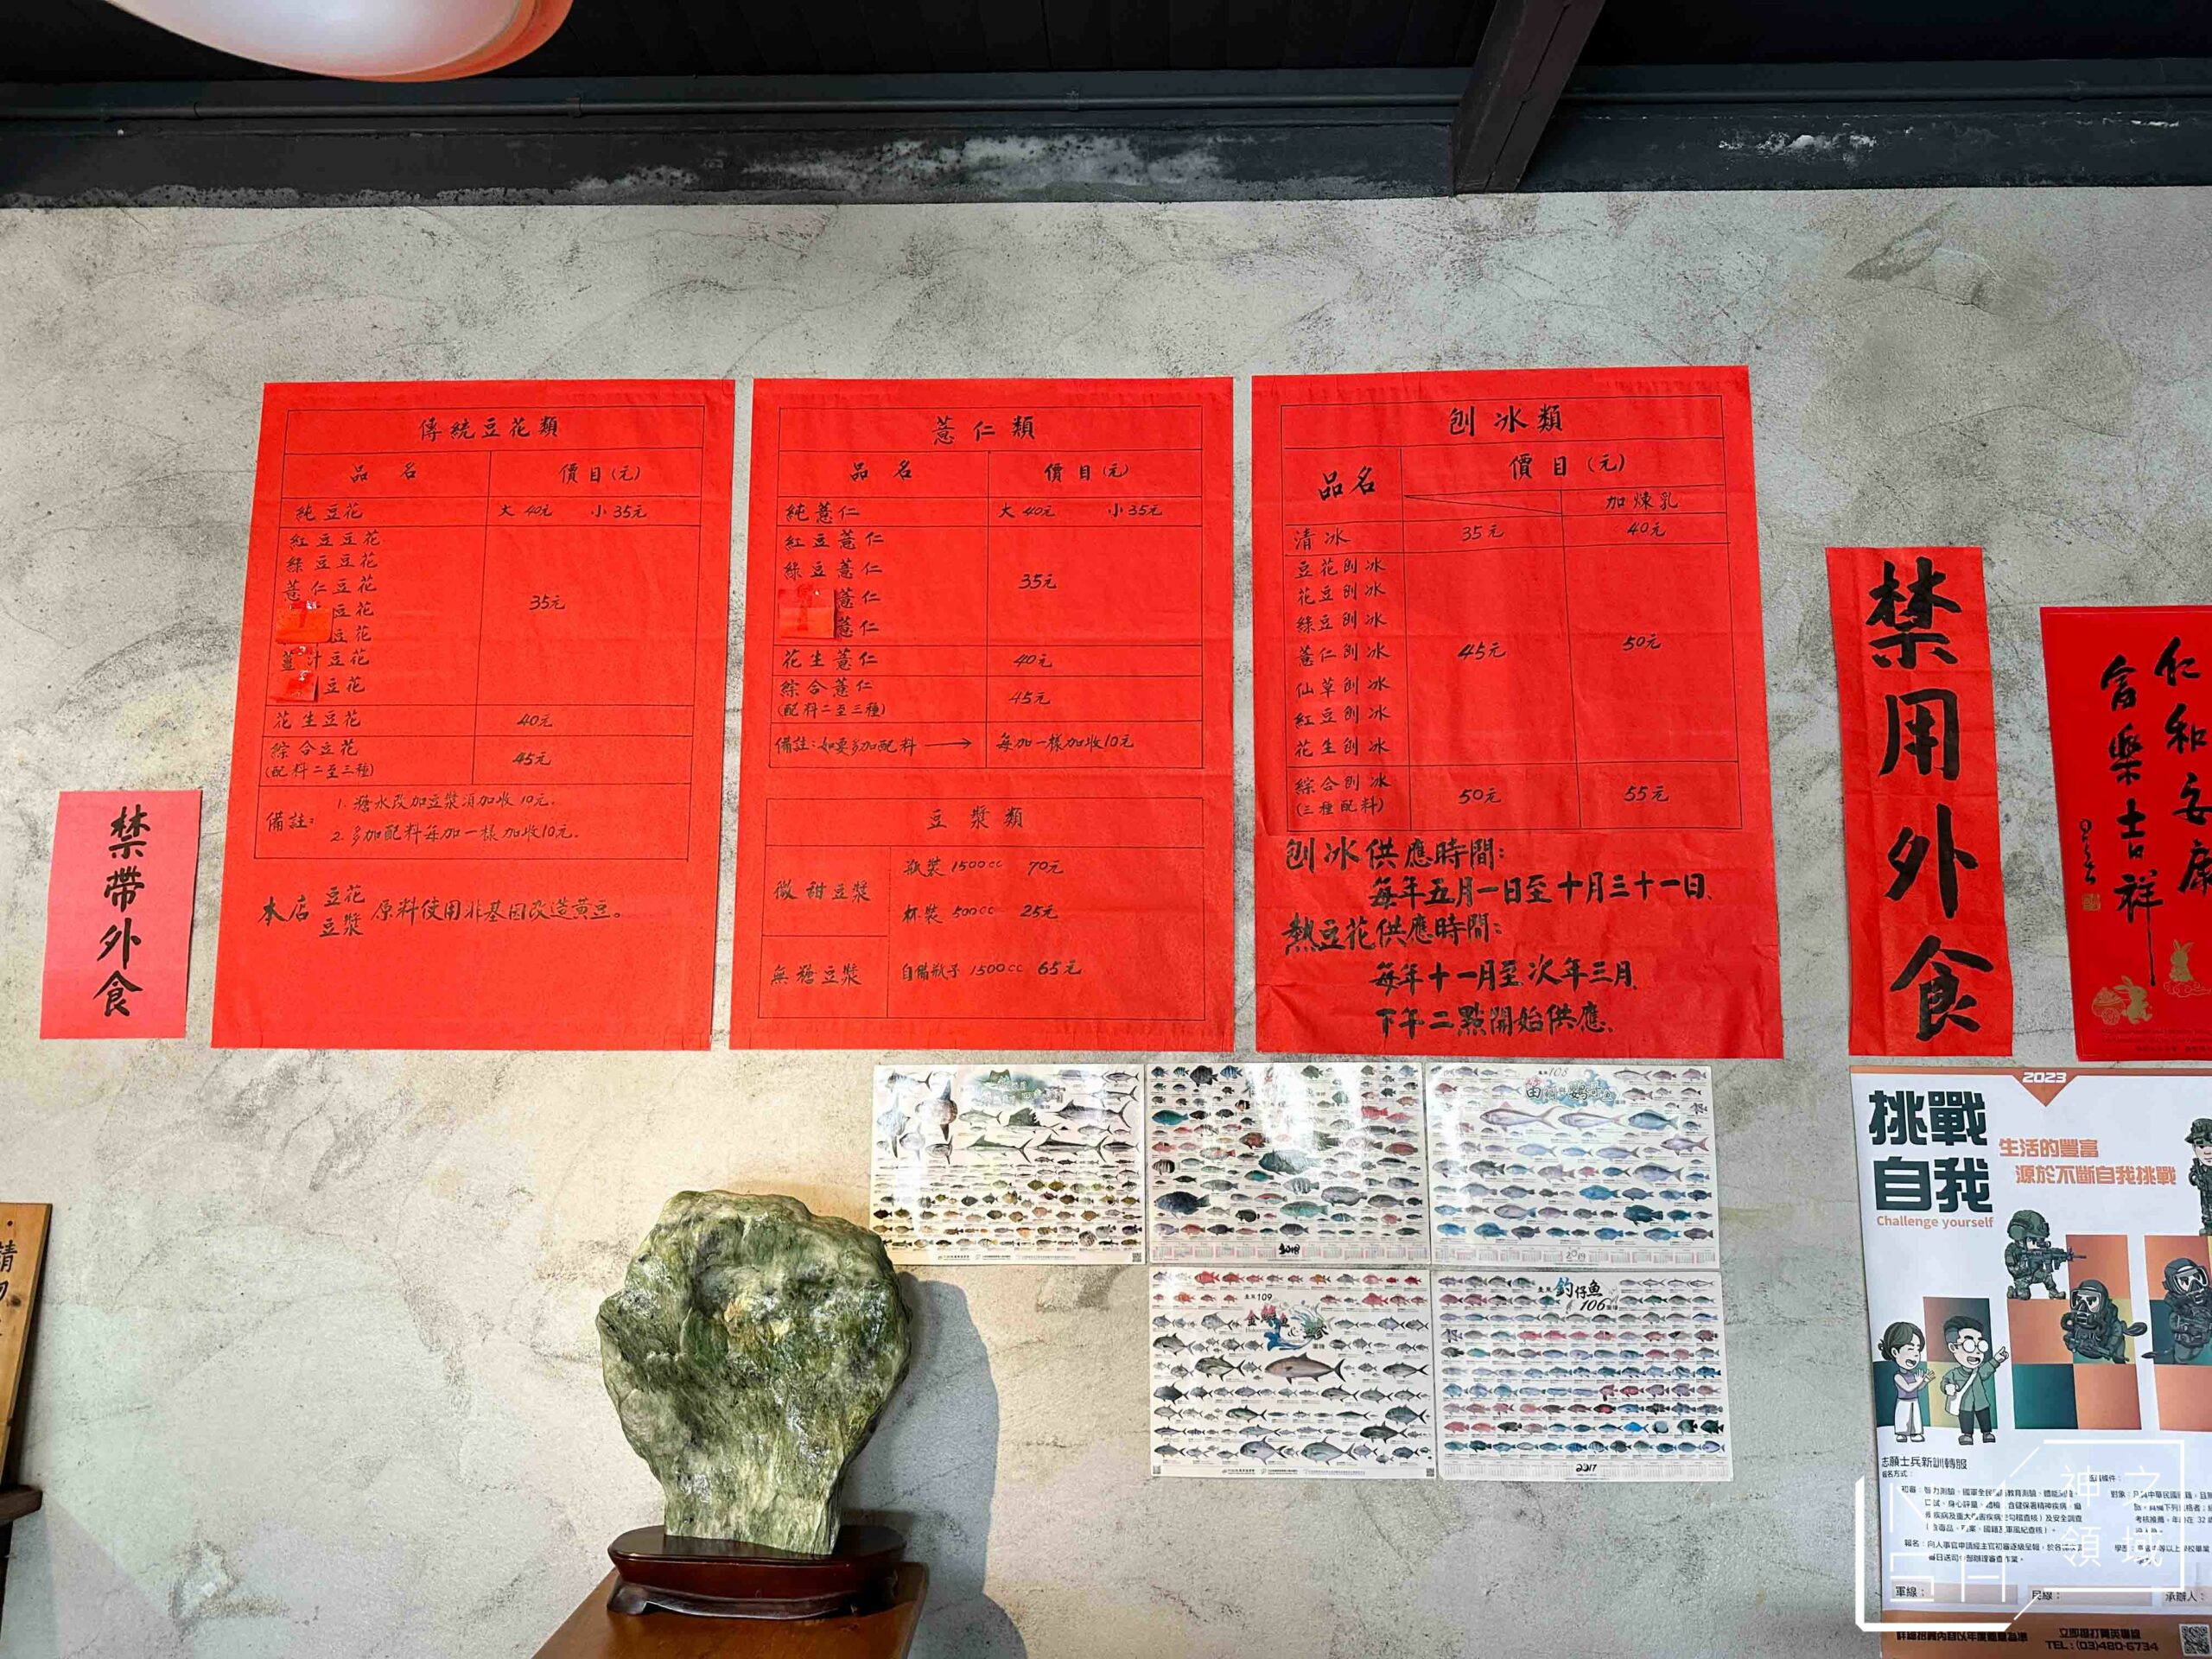 傳統豆花類
品名 價目(元)
純豆花 大40元 小35元
紅豆豆花
綠豆豆花
薏仁豆花
豆花
豆花
薑汁豆花
豆花
35元
花生豆花 40元
綜合豆花
(配料二至三種)
45元
備註:
1. 糖水改加豆漿須加收10元.
2. 多加配料每加一樣加收10元。
本店 豆花 豆漿 原料使用非基因改造黃豆。
薏仁類
品名 價目(元)
純薏仁 大40元 小35元
紅豆薏仁
綠豆薏仁
薏仁
薏仁
35元
花生薏仁 40元
綜合薏仁
(配料二至三種)
45元
備註:如要多加配料 → 每加一樣加收10元
豆漿類
微甜豆漿
無糖豆漿
瓶裝1500cc 70元
杯裝500cc 25元
自備瓶子1500cc 65元
刨冰類
品名 價目(元)
加煉乳
清冰 35元 40元
豆花刨冰
花豆刨冰
綠豆刨冰
薏仁刨冰
仙草刨冰
紅豆刨冰
花生刨冰
45元 50元
綜合刨冰
(三種配料)
50元 55元
刨冰供應時間:
每年五月一日至十月三十一日.
熱豆花供應時間:
每年十一月至次年三月.
下午二點開始供應.
禁帶外食
禁用外食
仁和安康
富樂吉祥
2023
挑戰
自我
Challenge yourself
生活的豐富
源於不斷自我挑戰
志願士兵新訓轉服
軍線:
民線:
承辦人:
TEL:(03)480-5734
2018
108
2019
109
釣仔魚
106
2017
神之
領域